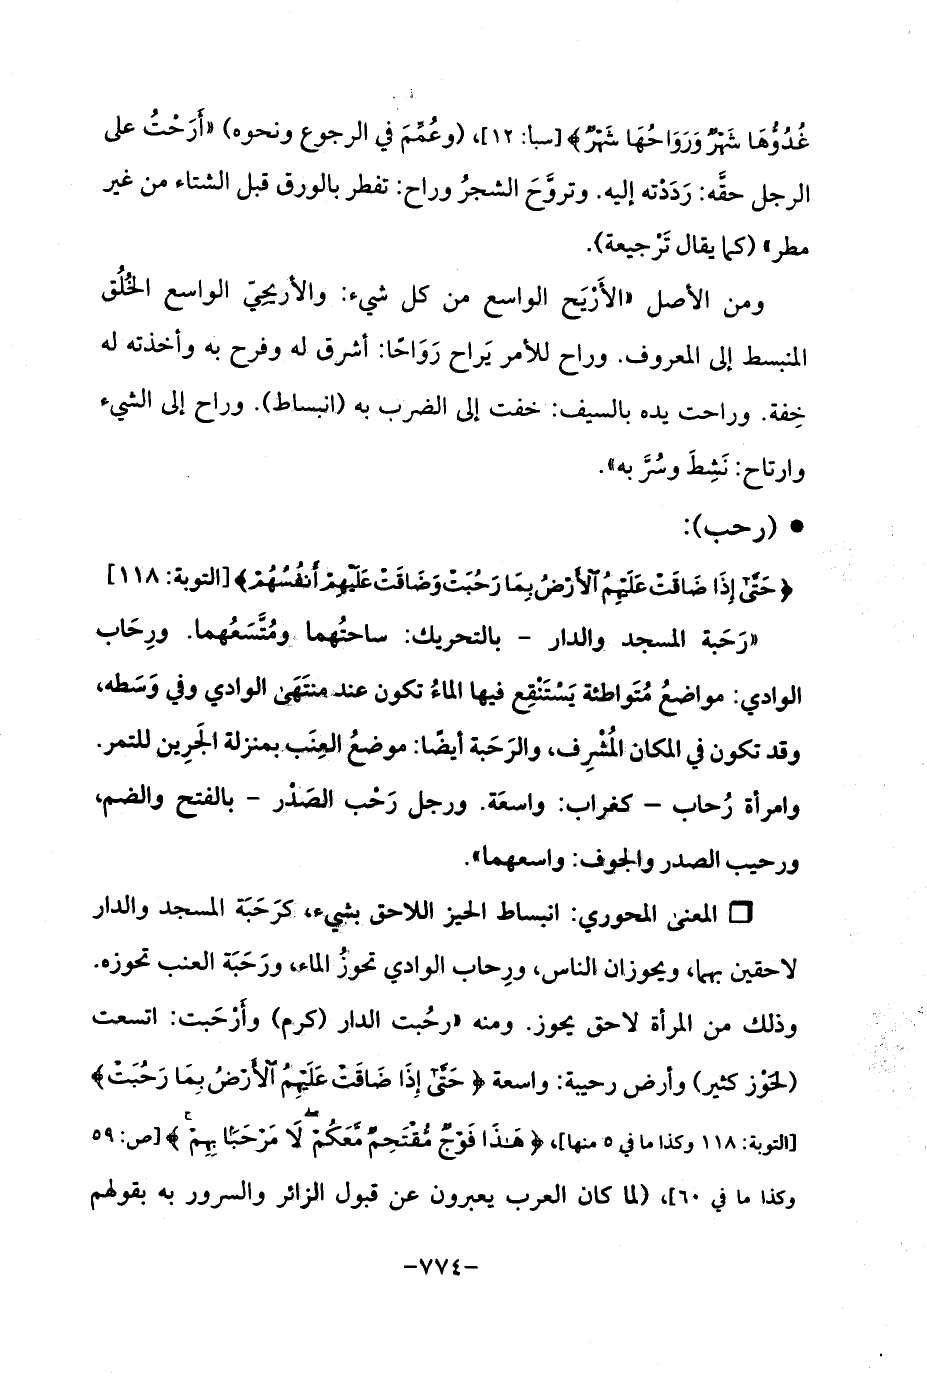 غُدُوُّهَا شَهْرٌ وَرَوَاحُهَا شَهْرٌ﴾ [سبا: ١٢]، (وعُمِّمَ في الرجوع ونحوه) «أَرَحْتُ على
الرجل حقَّه: رَدَدْته إليه. وتروَّحَ الشجرُ وراح: تفطر بالورق قبل الشتاء من غير
مطر» (كما يقال تَرْجيعة).
ومن الأصل «الأَرْيَح الواسع من كل شيء: والأريحيّ الواسع الخُلُق
المنبسط إلى المعروف. وراح للأمر يَراح رَوَاحًا: أشرق له وفرح به وأخذته له
خِفة. وراحت يده بالسيف: خفت إلى الضرب به (انبساط). وراح إلى الشيء
وارتاح: نَشِطَ وسُرَّ به».
• (رحب):
﴿حَتَّىٰٓ إِذَا ضَاقَتْ عَلَيْهِمُ ٱلْأَرْضُ بِمَا رَحُبَتْ وَضَاقَتْ عَلَيْهِمْ أَنفُسُهُمْ﴾ [التوبة: ١١٨]
«رَحَبة المسجد والدار – بالتحريك: ساحتُهما ومُتَّسَعُهما. ورِحَاب
الوادي: مواضعُ مُتَواطئة يَسْتَنْقِع فيها الماءُ تكون عند منتَهَى الوادي وفي وَسَطه،
وقد تكون في المكان المُشْرِف، والرَحَبة أيضًا: موضعُ العِنَب بمنزلة الجَرِين للتمر.
وامرأة رُحاب – كغراب: واسعَة. ورجل رَحْب الصَدْر – بالفتح والضم،
ورحيب الصدر والجوف: واسعهما».
□ المعنى المحوري: انبساط الحيز اللاحق بشيء، كرَحَبَة المسجد والدار
لاحقين بهما، ويحوزان الناس، ورِحاب الوادي تحوزُ الماء، ورَحَبَة العنب تحوزه.
وذلك من المرأة لاحق يحوز. ومنه «رحُبت الدار (كرم) وأَرْحَبت: اتسعت
(لحَوْز كثير) وأرض رحيبة: واسعة ﴿حَتَّىٰٓ إِذَا ضَاقَتْ عَلَيْهِمُ ٱلْأَرْضُ بِمَا رَحُبَتْ﴾
[التوبة: ١١٨ وكذا ما في ٥ منها]، ﴿هَـٰذَا فَوْجٌ مُّقْتَحِمٌ مَّعَكُمْ ۖ لَا مَرْحَبًۢا بِهِمْ ۚ﴾ [ص: ٥٩
وكذا ما في ٦٠]، (لما كان العرب يعبرون عن قبول الزائر والسرور به بقولهم
-٧٧٤-